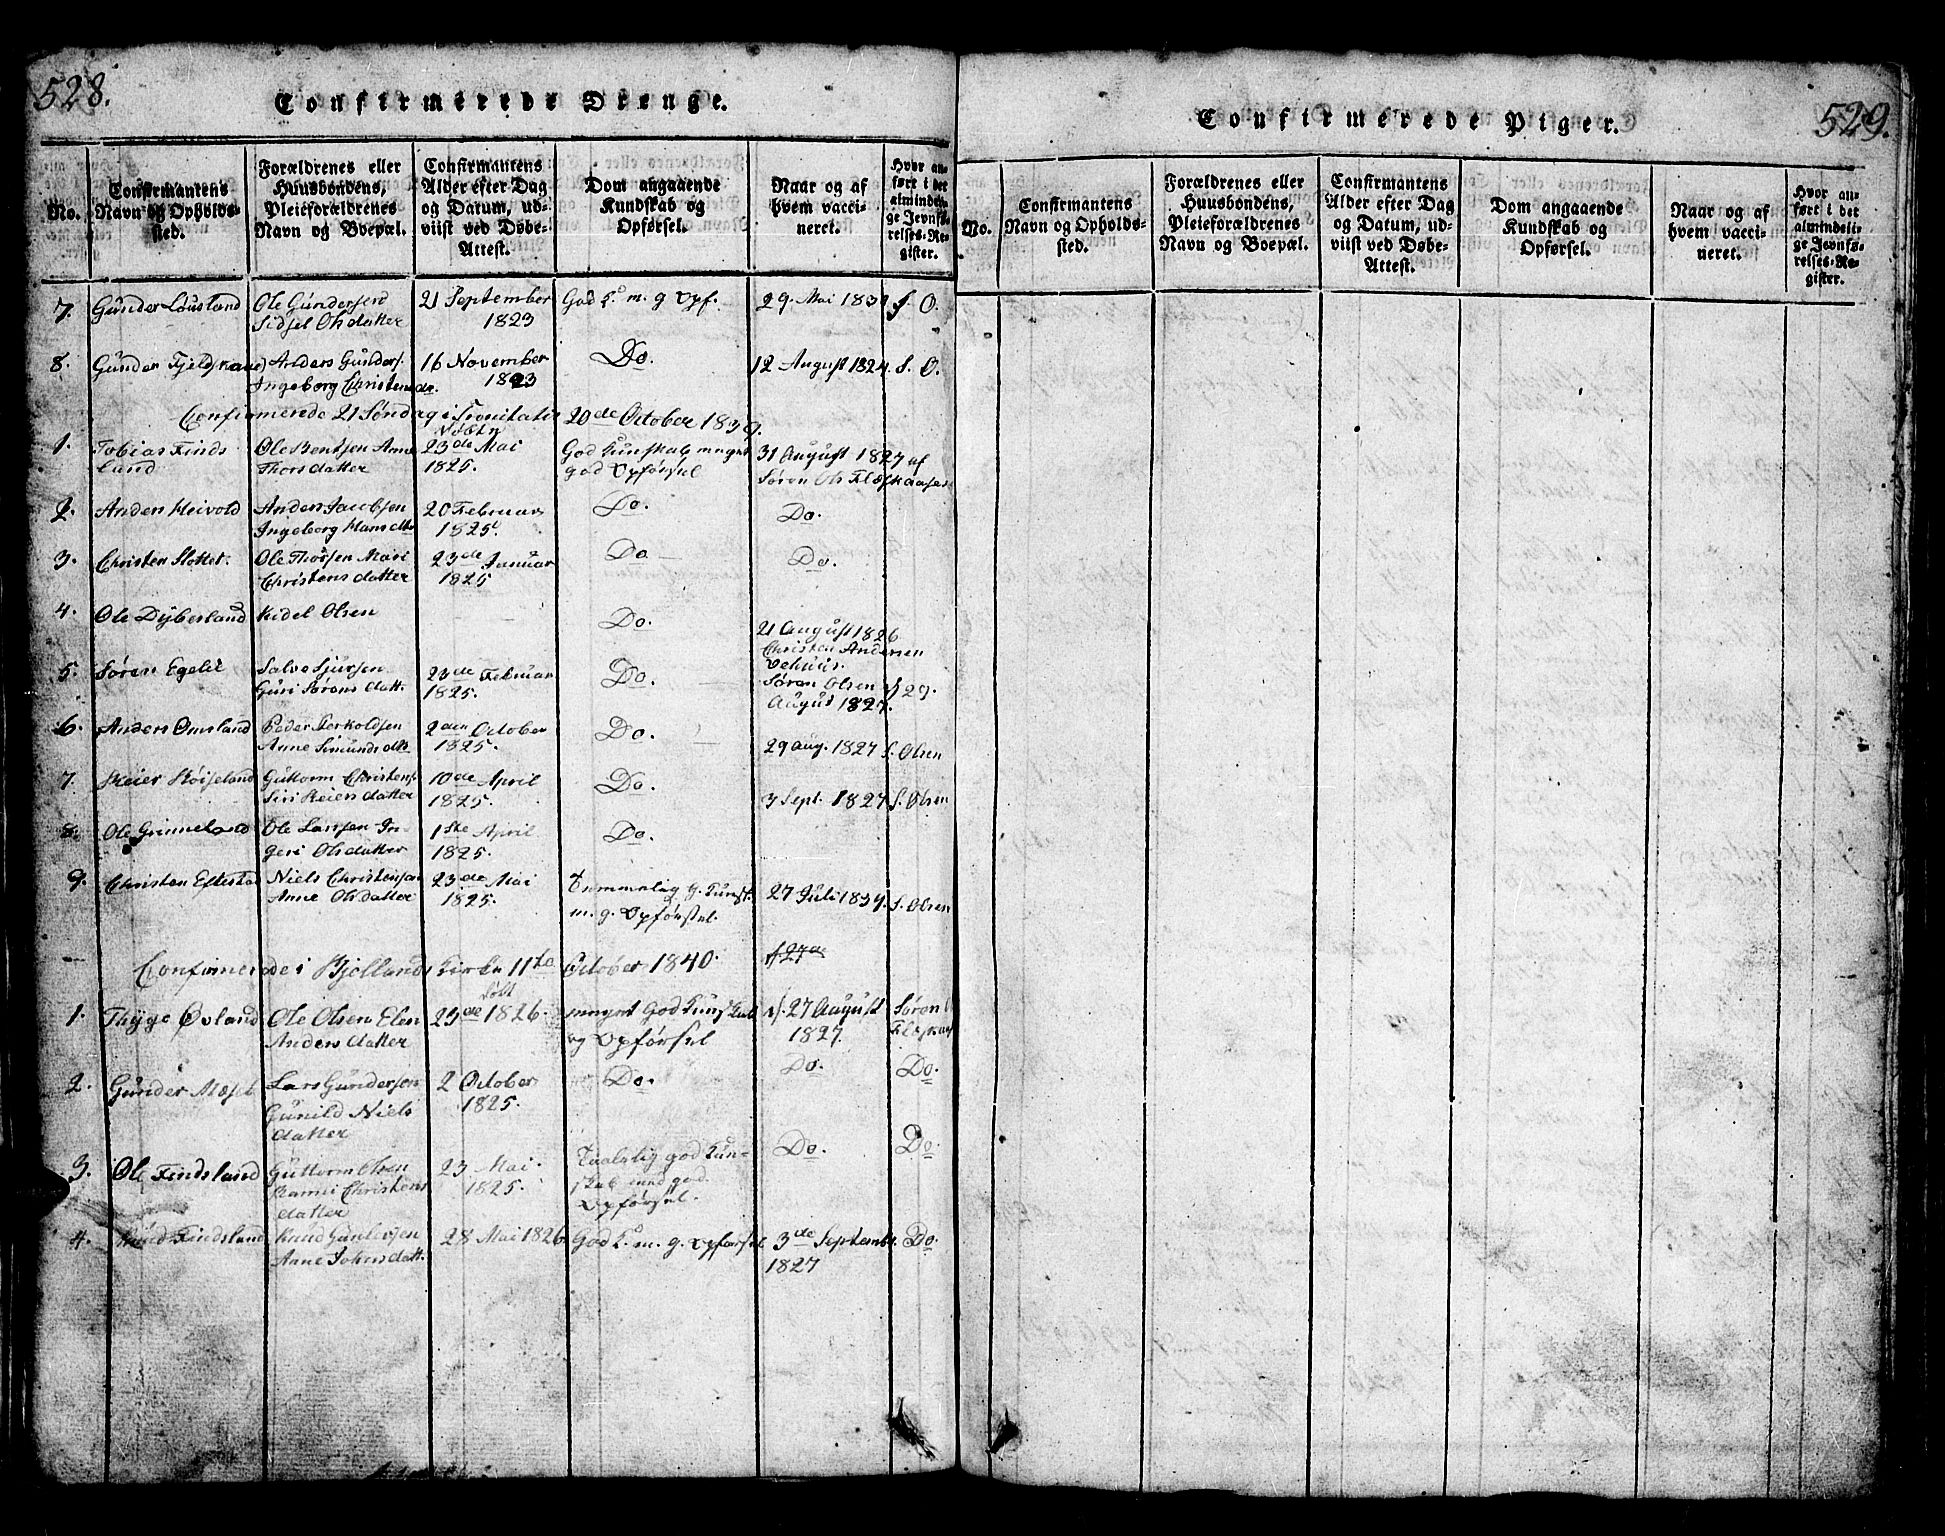 528.
Confirmerede Drenge.
No.
Confirmantens Navn og Opholds-sted.
Forældrenes eller Huusbondens, Pleieforældrenes Navn og Boepæl.
Confirmantens Alder efter Dag og Datum, ud-viist ved Døbe-Attest.
Dom angaaende Kundskab og Opførsel.
Naar og af hvem vacci-neret.
Hvor an-ført i det almindeli-ge Jevnfø-relses-Re-gister.
7. Gunder Lousland Ole Gundersen 21 September God K. m. g. Opf. 29. Mai S. O.
Sidsel Olsdatter 1823
8. Gunder Anders Gunders. 16 November Do. 12 August 1824. S. O.
Ingeborg Christensd. 1823
Confirmerede 21 Søndag i Trinitatis 20de October 1839.
1. Tobias Finds Ole Bentsen Anne 23de Mai God Kunskab meget 31 August 1827 af
land Thorsdatter 1825. god Opførsel Søren Ols
2. Anders Heivold Anders Jacobsen 20 Februar Do. Do.
Ingeborg Hansdtr 1825
3. Christen Slottet. Ole Thorsen Mari 23de Januar Do Do.
Christensdatter 1825
4. Ole Dyberland Kidel Olsen Do.
21 August 1826
Christen Andersen
5. Søren Egelie Salve Sjursen 23de Februar Do.
Guri Sørensdatt. 1825. Søren Olsen 29.
August 1827.
6. Anders Omsland Peder Terkoldsen 2den October Do.
Anne Simundsdtr 1825. 29 Aug. 1827 S. Olsen
7. Reier Høiseland Guttorm Christens. 10de April Do.
Siri Reiersdatter 1825. 3 Sept. 1827 S. Olsen
8. Ole Grinneland Ole Larsen In- 1ste April Do.
geri Olsdatter 1825.
9. Christen Eftestad Niels Christensen 23de Mai Temmelig g. Kunsk. 27 Juli S. Olsen
Anne Olsdatter 1825. m. g. Opførsel
Confirmerede i Bjellands Kirke 11te October 1840.
født
1. Thyge Øvland Ole Olsen Elen 23de 1826. meget God Kunskab 27 August Søren
Andersdatter og Opførsel 1827.
2. Gunder Lars Gundersen 2 October Do. Do. Do.
Gunild Niels 1825.
datter
3. Ole Findsland Guttorm Olsen 23 Mai Taalelig god Kun- Do. Do.
Christens 1825. skab med god
datter Opførsel.
4. Knud Findsland Knud Gunlevsen 28 Mai 1826 God K. m. g. Opførsel 3de Septembr. Do.
Anne Johnsdatt. 1827
529.
Confirmerede Piger.
No.
Confirmantens Navn og Opholds-sted.
Forældrenes eller Huusbondens, Pleieforældrenes Navn og Boepæl.
Confirmantens Alder efter Dag og Datum, ud-viist ved Døbe-Attest.
Dom angaaende Kundskab og Opførsel.
Naar og af hvem vacci-neret.
Hvor an-ført i det almindeli-ge Jevnfø-relses-Re-gister.